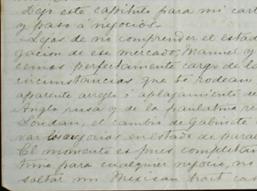 Dejo este capítulo para mi cart
y paso á negocios.
Lejos de no comprender el estad
gacion de ese mercado, Manuel y
cemos perfectamente cargo de l
circunstancias que lo rodean
aparente arreglo i aplazamiento de
Anglo rusa y de la paulatina re
London, el cambio de Gabinete
en estado de
El momento es pues completam
para cualquier negocio, no
saltar un Mexican